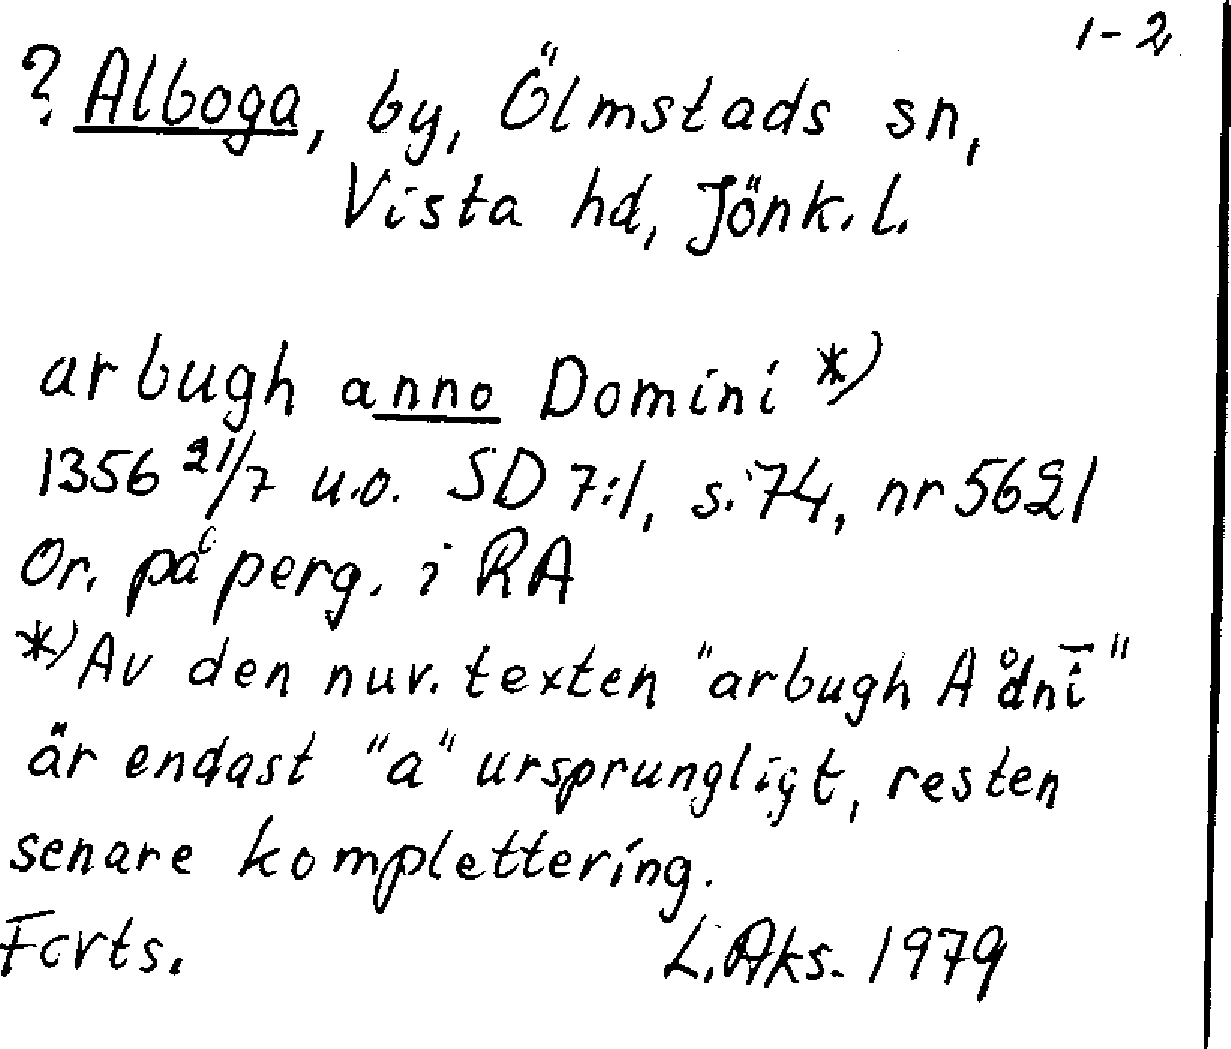 1-2
? Alboga, by, Ölmstads sn,
Vista hd, Jönk. l.
arbugh anno Domini *)
1356 21/7 u.o. SD 7:1, s. 74, nr 5621
Or. på perg. i RA
*) Av den nuv. texten "arbugh A° dni̅"
är endast "a" ursprungligt, resten
senare komplettering.
Forts. L. Aks. 1979